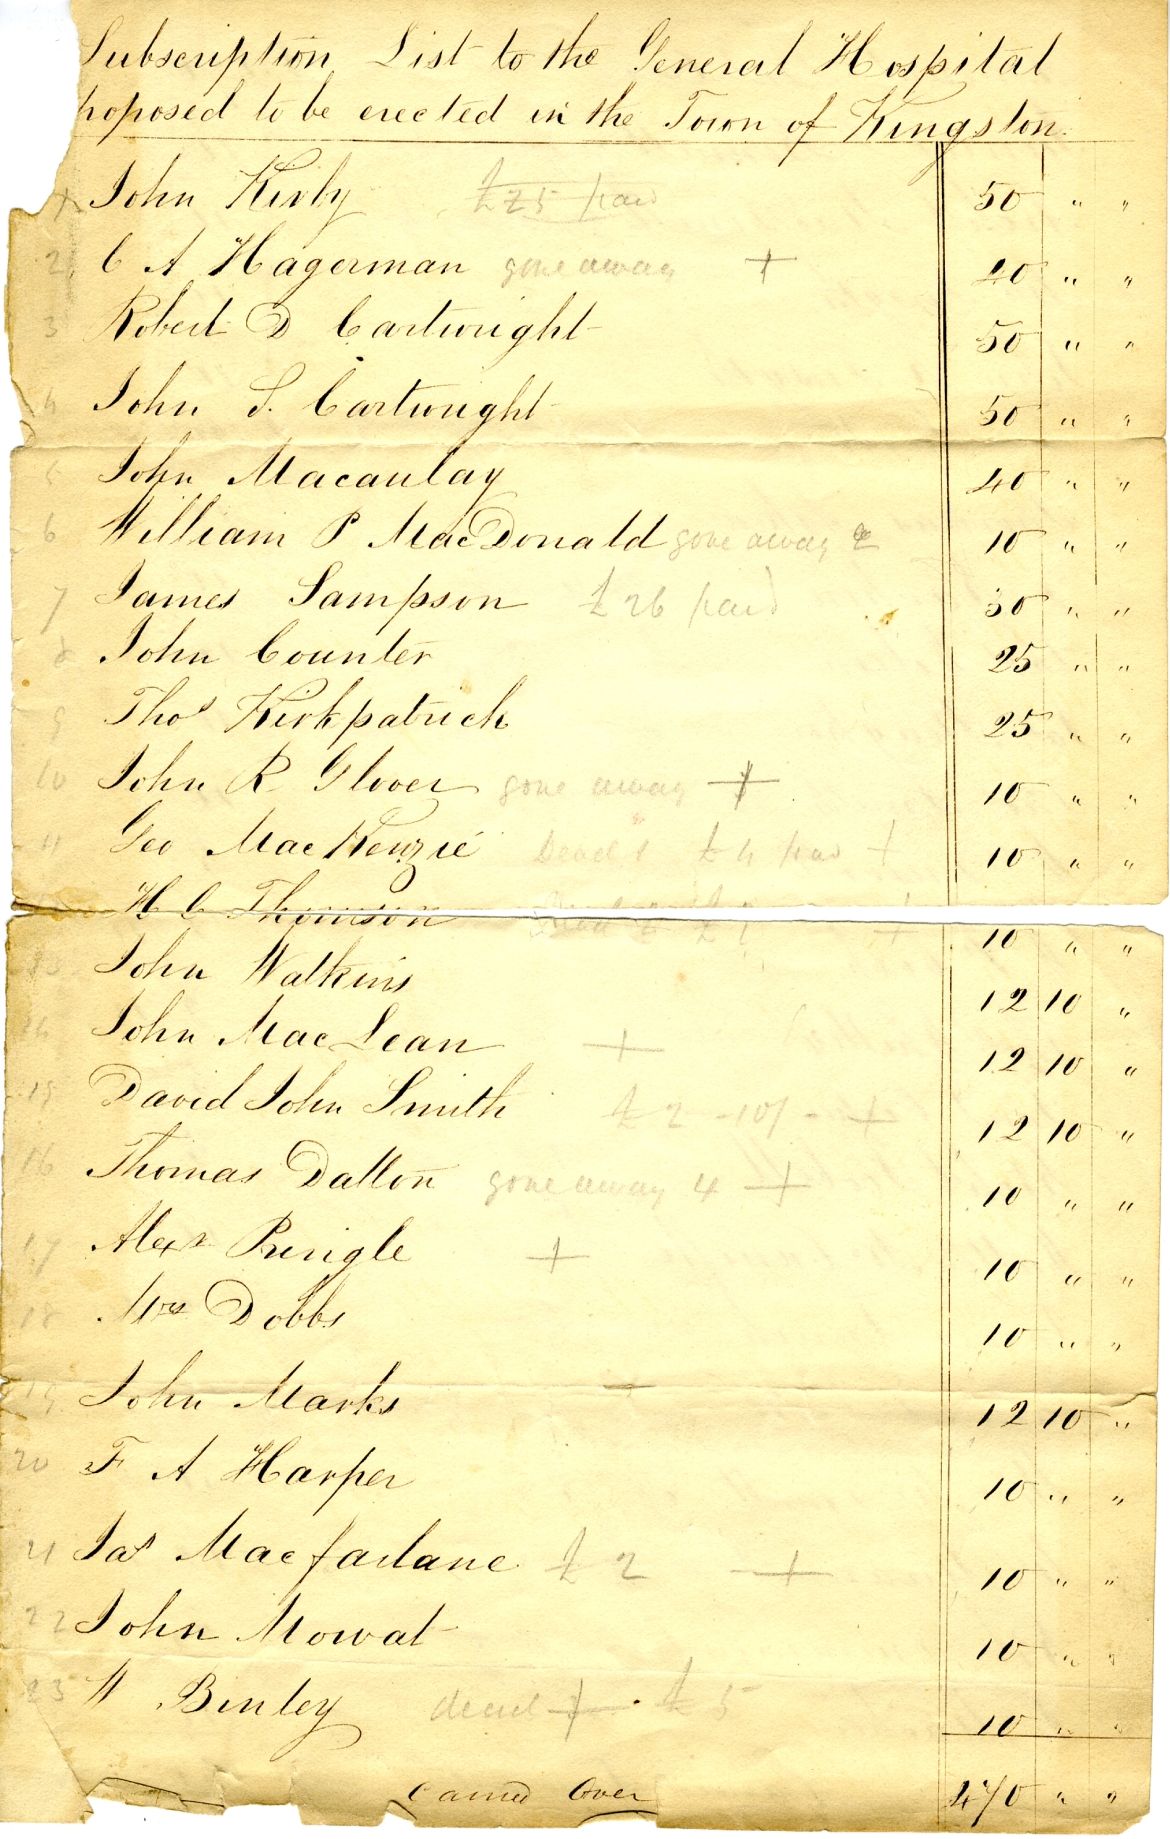 Subscription List to the General Hospital
proposed to be erected in the Town of Kingston.
1 John Kirby £25 paid 50 " "
2 C A Hagerman gone away + 20 " "
3 Robert D Cartwright 50 " "
4 John S. Cartwright 50 " "
5 John Macaulay 40 " "
6 William P MacDonald gone away 10 " "
7 James Sampson £26 paid 50 " "
8 John Counter 25 " "
9 Thos Kirkpatrick 25 " "
10 John R Glover gone away + 10 " "
11 Geo MacKenzie Dead £4 paid + 10 " "
H C Thomson Dead £ + 10 " "
13 John Watkins 12 10 "
14 John MacLean + 12 10 "
15 David John Smith £2-10/- + 12 10 "
16 Thomas Dalton gone away 4 + 10 " "
17 Alexr Pringle + 10 " "
18 Mrs Dobbs 10 " "
19 John Marks 12 10 "
20 F A Harper 10 " "
21 Jas Macfarlane £2 + 10 " "
22 John Mowat 10 " "
23 W Binley dead + £5 10 " "
Carried Over 470 " "